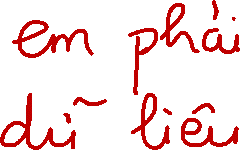 em phải
dữ liêu